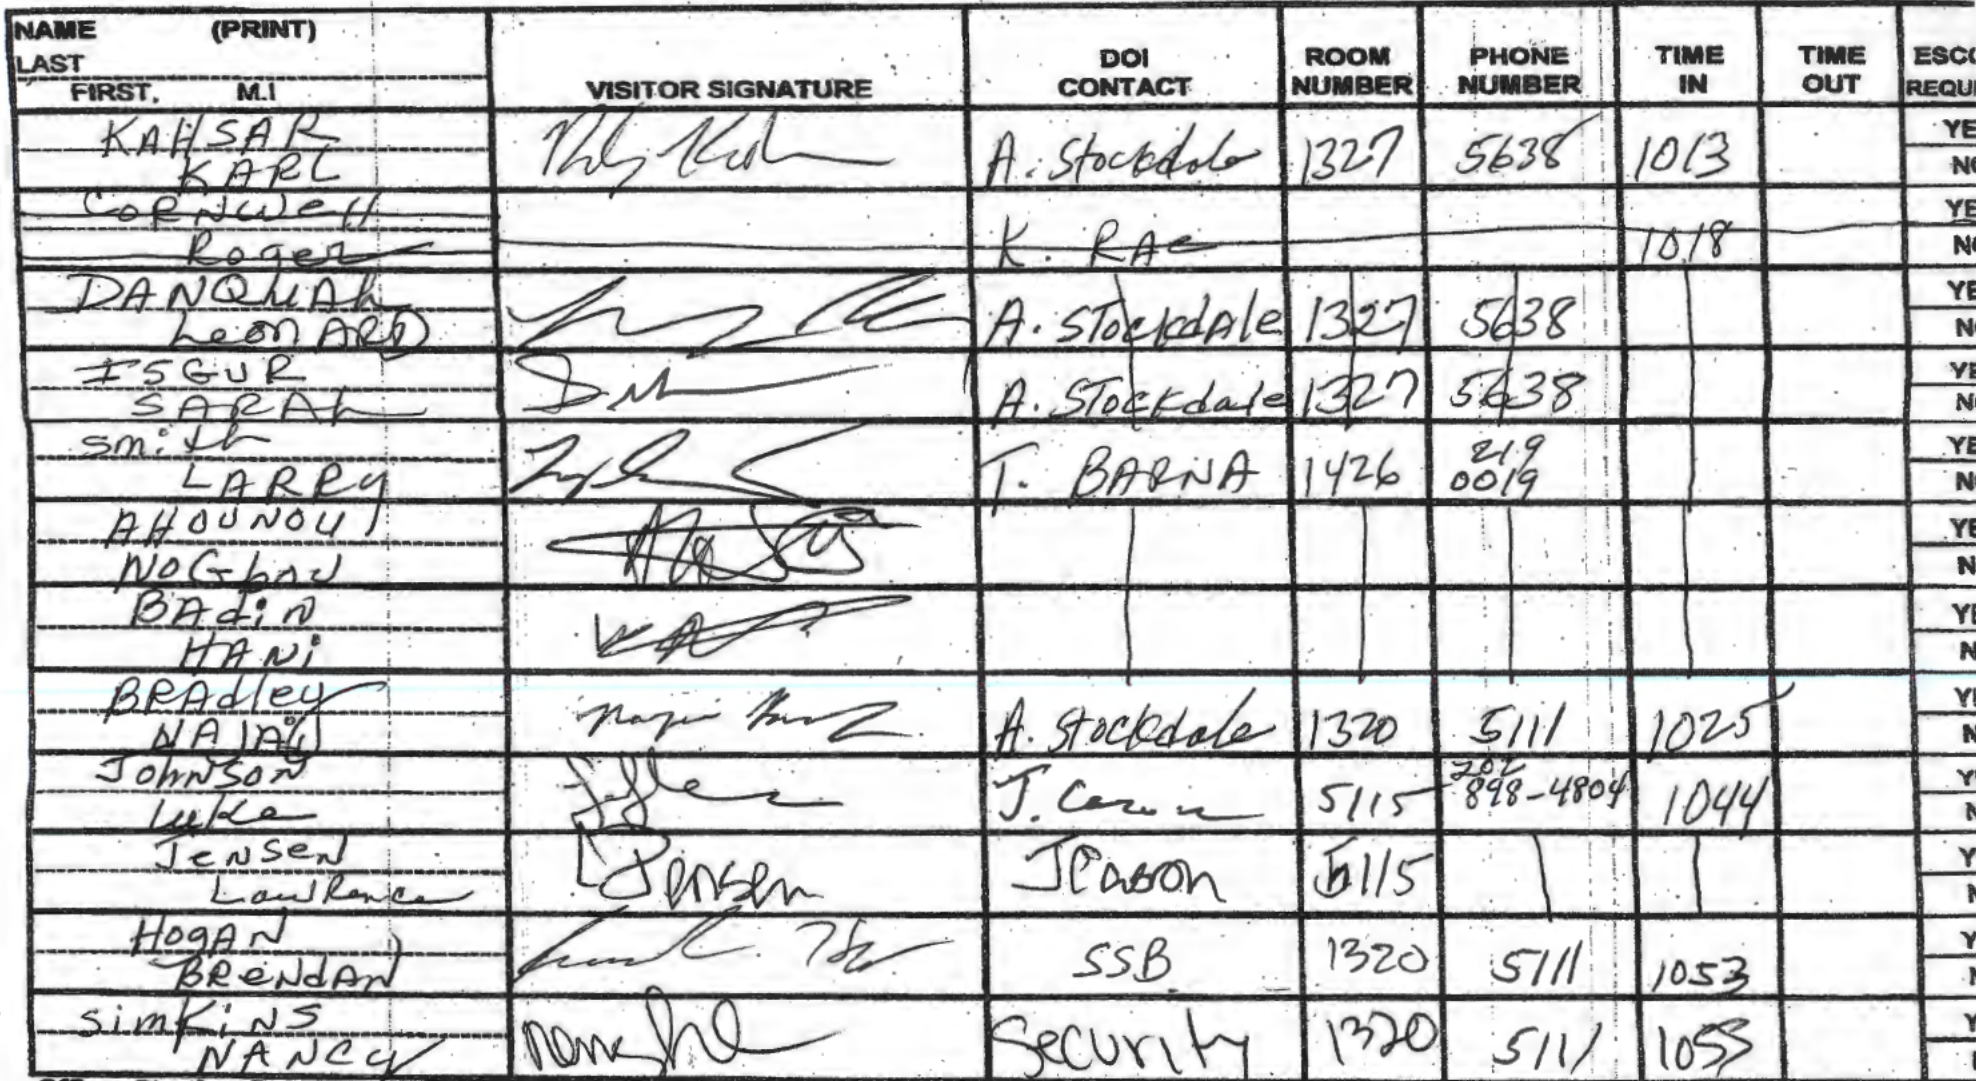 NAME (PRINT)
LAST
FIRST, M.I
VISITOR SIGNATURE
DOI CONTACT
ROOM NUMBER
PHONE NUMBER
TIME IN
TIME OUT
KAHSAR
KARL
A. Stockdale 1327 5638 1013
CORNWELL
Roger
K. RAE 1018
DANQUAH
LEONARD
A. STOCKDALE 1327 5638
ISGUR
SARAH
A. STOCKdale 1327 5638
Smith
LARRY
T. BARNA 1426 219 0019
AHOUNOU
NOGbou
BAdiN
HANi
BRAdley
A. Stockdale 1320 5111 1025
JOHNSON
Luke
J. 5115 202 898-4804 1044
JENSEN
LawRence
LJensen JCason 5115
HOgAN
BRENDAN
SSB 1320 5111 1053
SimKiNS
NANCY
Security 1320 5111 1055